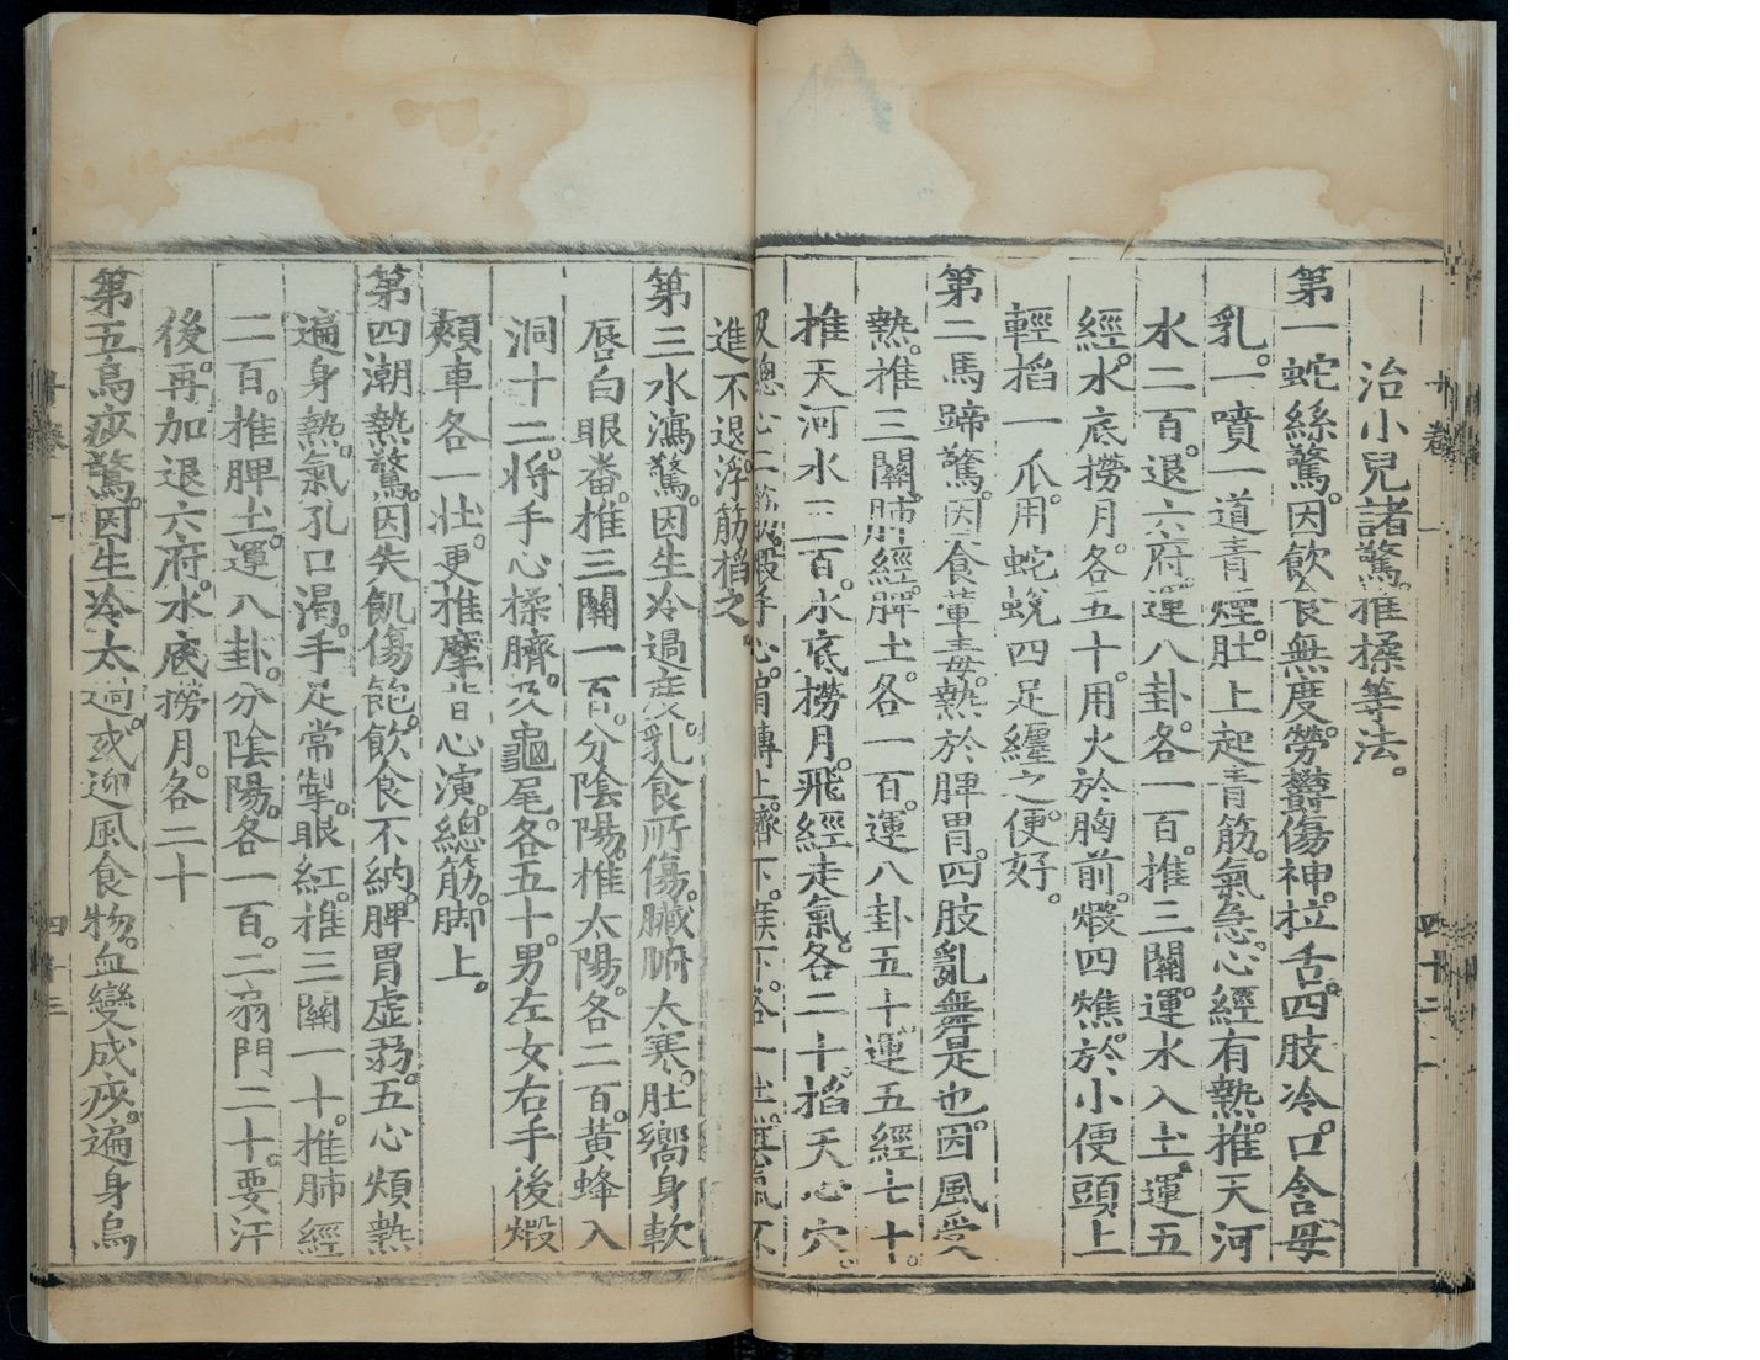 治小兒諸驚。推揉等法。
第一蛇絲驚。因飲食無度。勞鬱傷神。拉舌。四肢冷。口含母
乳。一噴一道青煙。肚上起青筋。氣急。心經有熱。推天河
水二百。退六府。運八卦。各一百。推三關。運水入土。運五
經。水底撈月。各五十。用火於胸前。煅四燋。於小便頭上
輕搯一爪。用蛇蛻四足纏之。便好。
第二馬蹄驚。因食葷毒。熱於脾胃。四肢亂舞是也。因風受
熱。推三關。肺經。脾土。各一百。運八卦五十。運五經七十。
推天河水三百。水底撈月。飛經走氣。各二十。搯天心穴。
及總心二筋。煅手心。肩膊上。臍下。喉下。各一壯。其氣不
進不退。浮筋搯之。
第三水瀉驚。因生冷過度。乳食所傷。臟腑太寒。肚嚮身軟
唇白眼番。推三關一百。分陰陽。推太陽。各二百。黃蜂入
洞十二。將手心揉臍。及龜尾。各五十。男左女右手後。煅
頰車各一壯。更推摩背心演。總筋。脚上。
第四潮熱驚。因失飢傷飽。飲食不納。脾胃虛弱。五心煩熱
遍身熱。氣孔口渴。手足常掣。眼紅。推三關一十。推肺經
二百。推脾土。運八卦。分陰陽。各一百。二扇門二十。要汗
後。再加退六府。水底撈月。各二十
第五烏痧驚。因生冷太過。或迎風食物。血變成痧。遍身烏